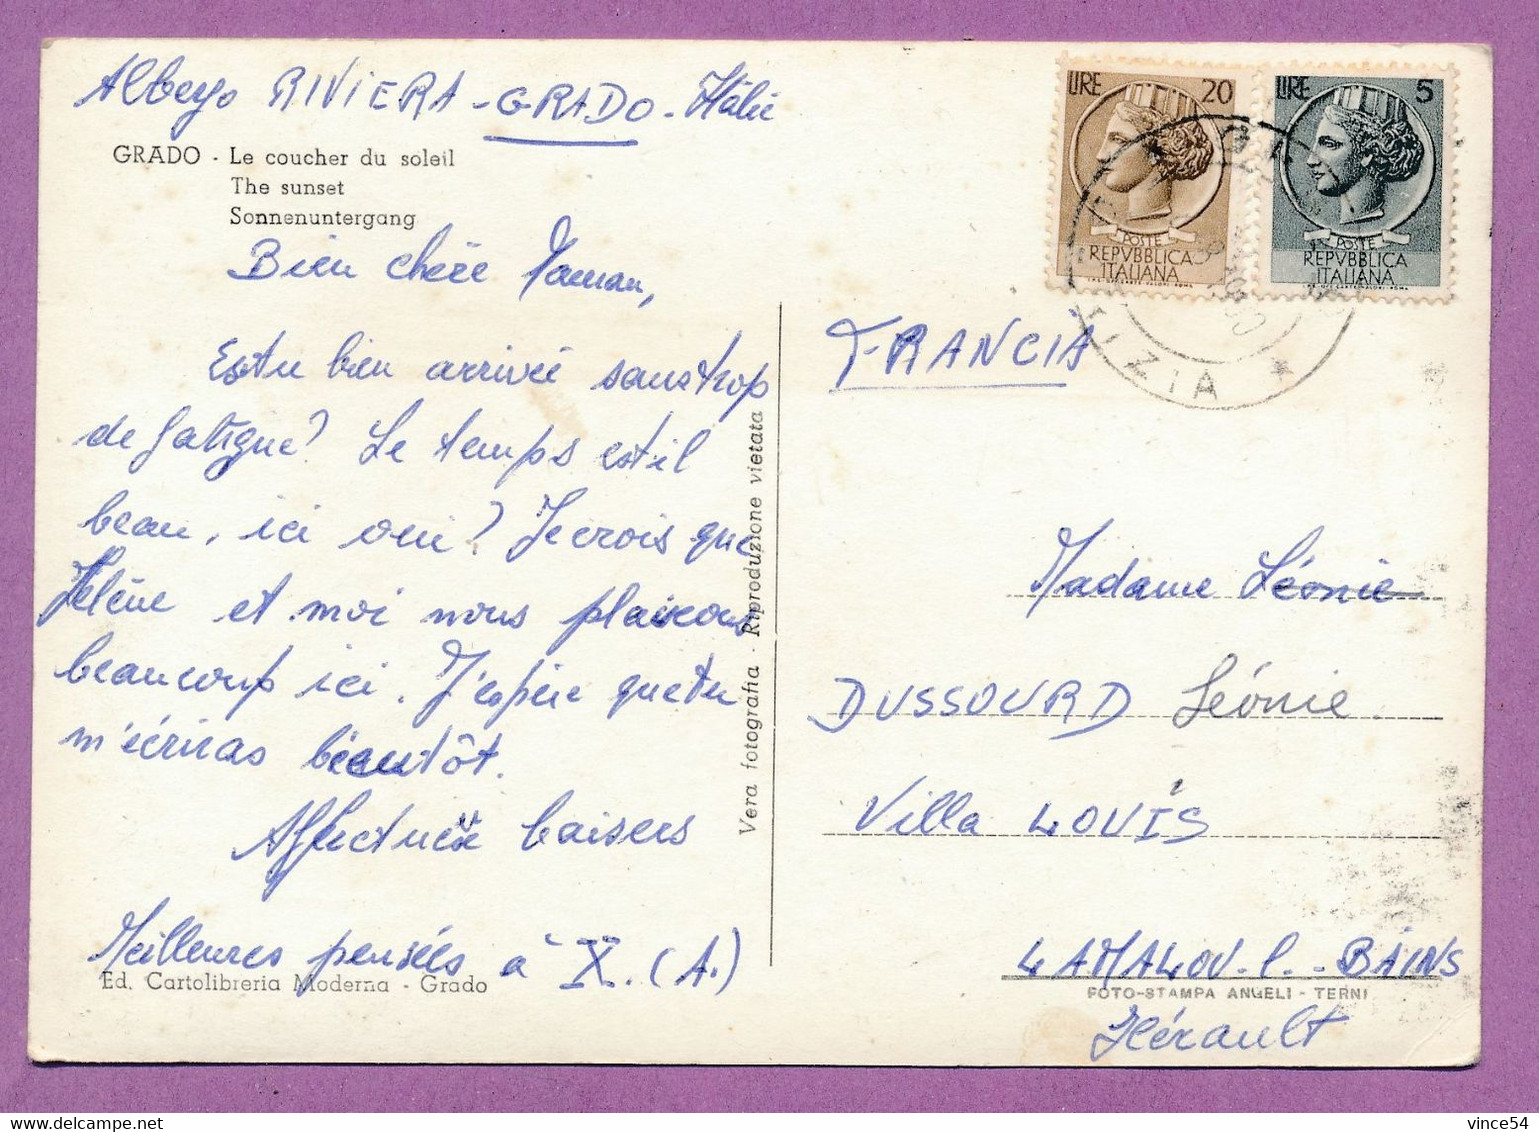 Albergo RIVIERA - GRADO - Italie
GRADO - Le coucher du soleil
The sunset
Sonnenuntergang
Bien chère Maman,
Estu bien arrivée sans trop
de fatigue? Le temps est il
beau, ici oui? Je crois que
Hélène et moi nous plaisons
beaucoup ici. J'espère que tu
m'écriras bientôt.
Affectueux baisers
Meilleures pensées à X. (A.)
Ed. Cartolibreria Moderna - Grado
Vera fotografia - Riproduzione vietata
LIRE 20
POSTE
REPVBBLICA
ITALIANA
I.P.S. OFF. CARTE-VALORI-ROMA
LIRE 5
POSTE
REPVBBLICA
ITALIANA
I.P.S. OFF. CARTE-VALORI-ROMA
FRANCIA
Madame Léonie
DUSSOURD Léonie
Villa LOUIS
LAMALOU-l.-BAINS
FOTO-STAMPA ANGELI - TERNI
Hérault
vince54